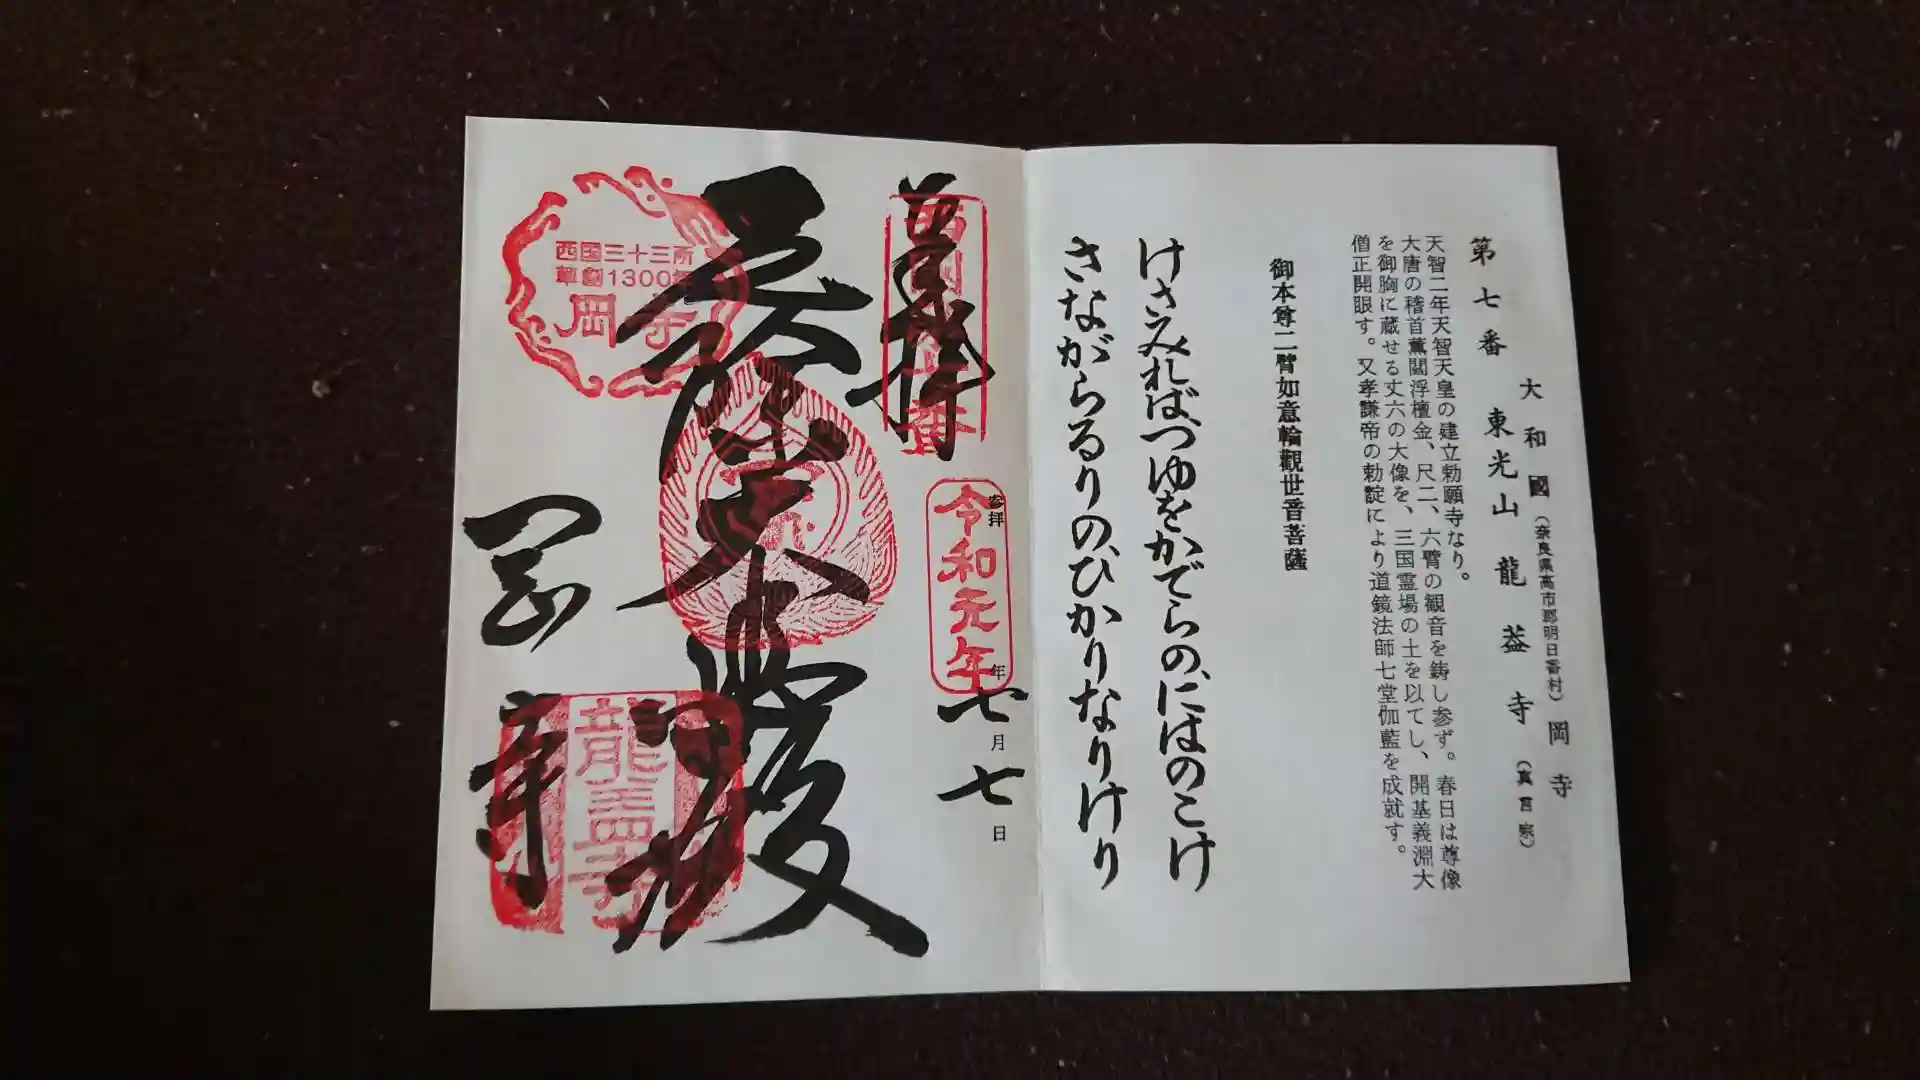 第七番
大和國(奈良県高市郡明日香村)岡寺
東光山龍蓋寺(真言宗)
天智二年天智天皇の建立勅願寺なり。
大唐の稽首薫閻浮檀金、尺二、六臂の観音を鋳し参ず。春日は尊像
を御胸に蔵せる丈六の大像を、三国霊場の土を以てし、開基義淵大
僧正開眼す。又孝謙帝の勅諚により道鏡法師七堂伽藍を成就す。
御本尊二臂如意輪觀世音菩薩
けさみればつゆをかでらの、にはのこけ
さながらるりの、ひかりなりけり
奉拝
参拝
令和元年
年
七月七日
西国三十三所
草創1300年
岡寺
岡寺
龍蓋寺